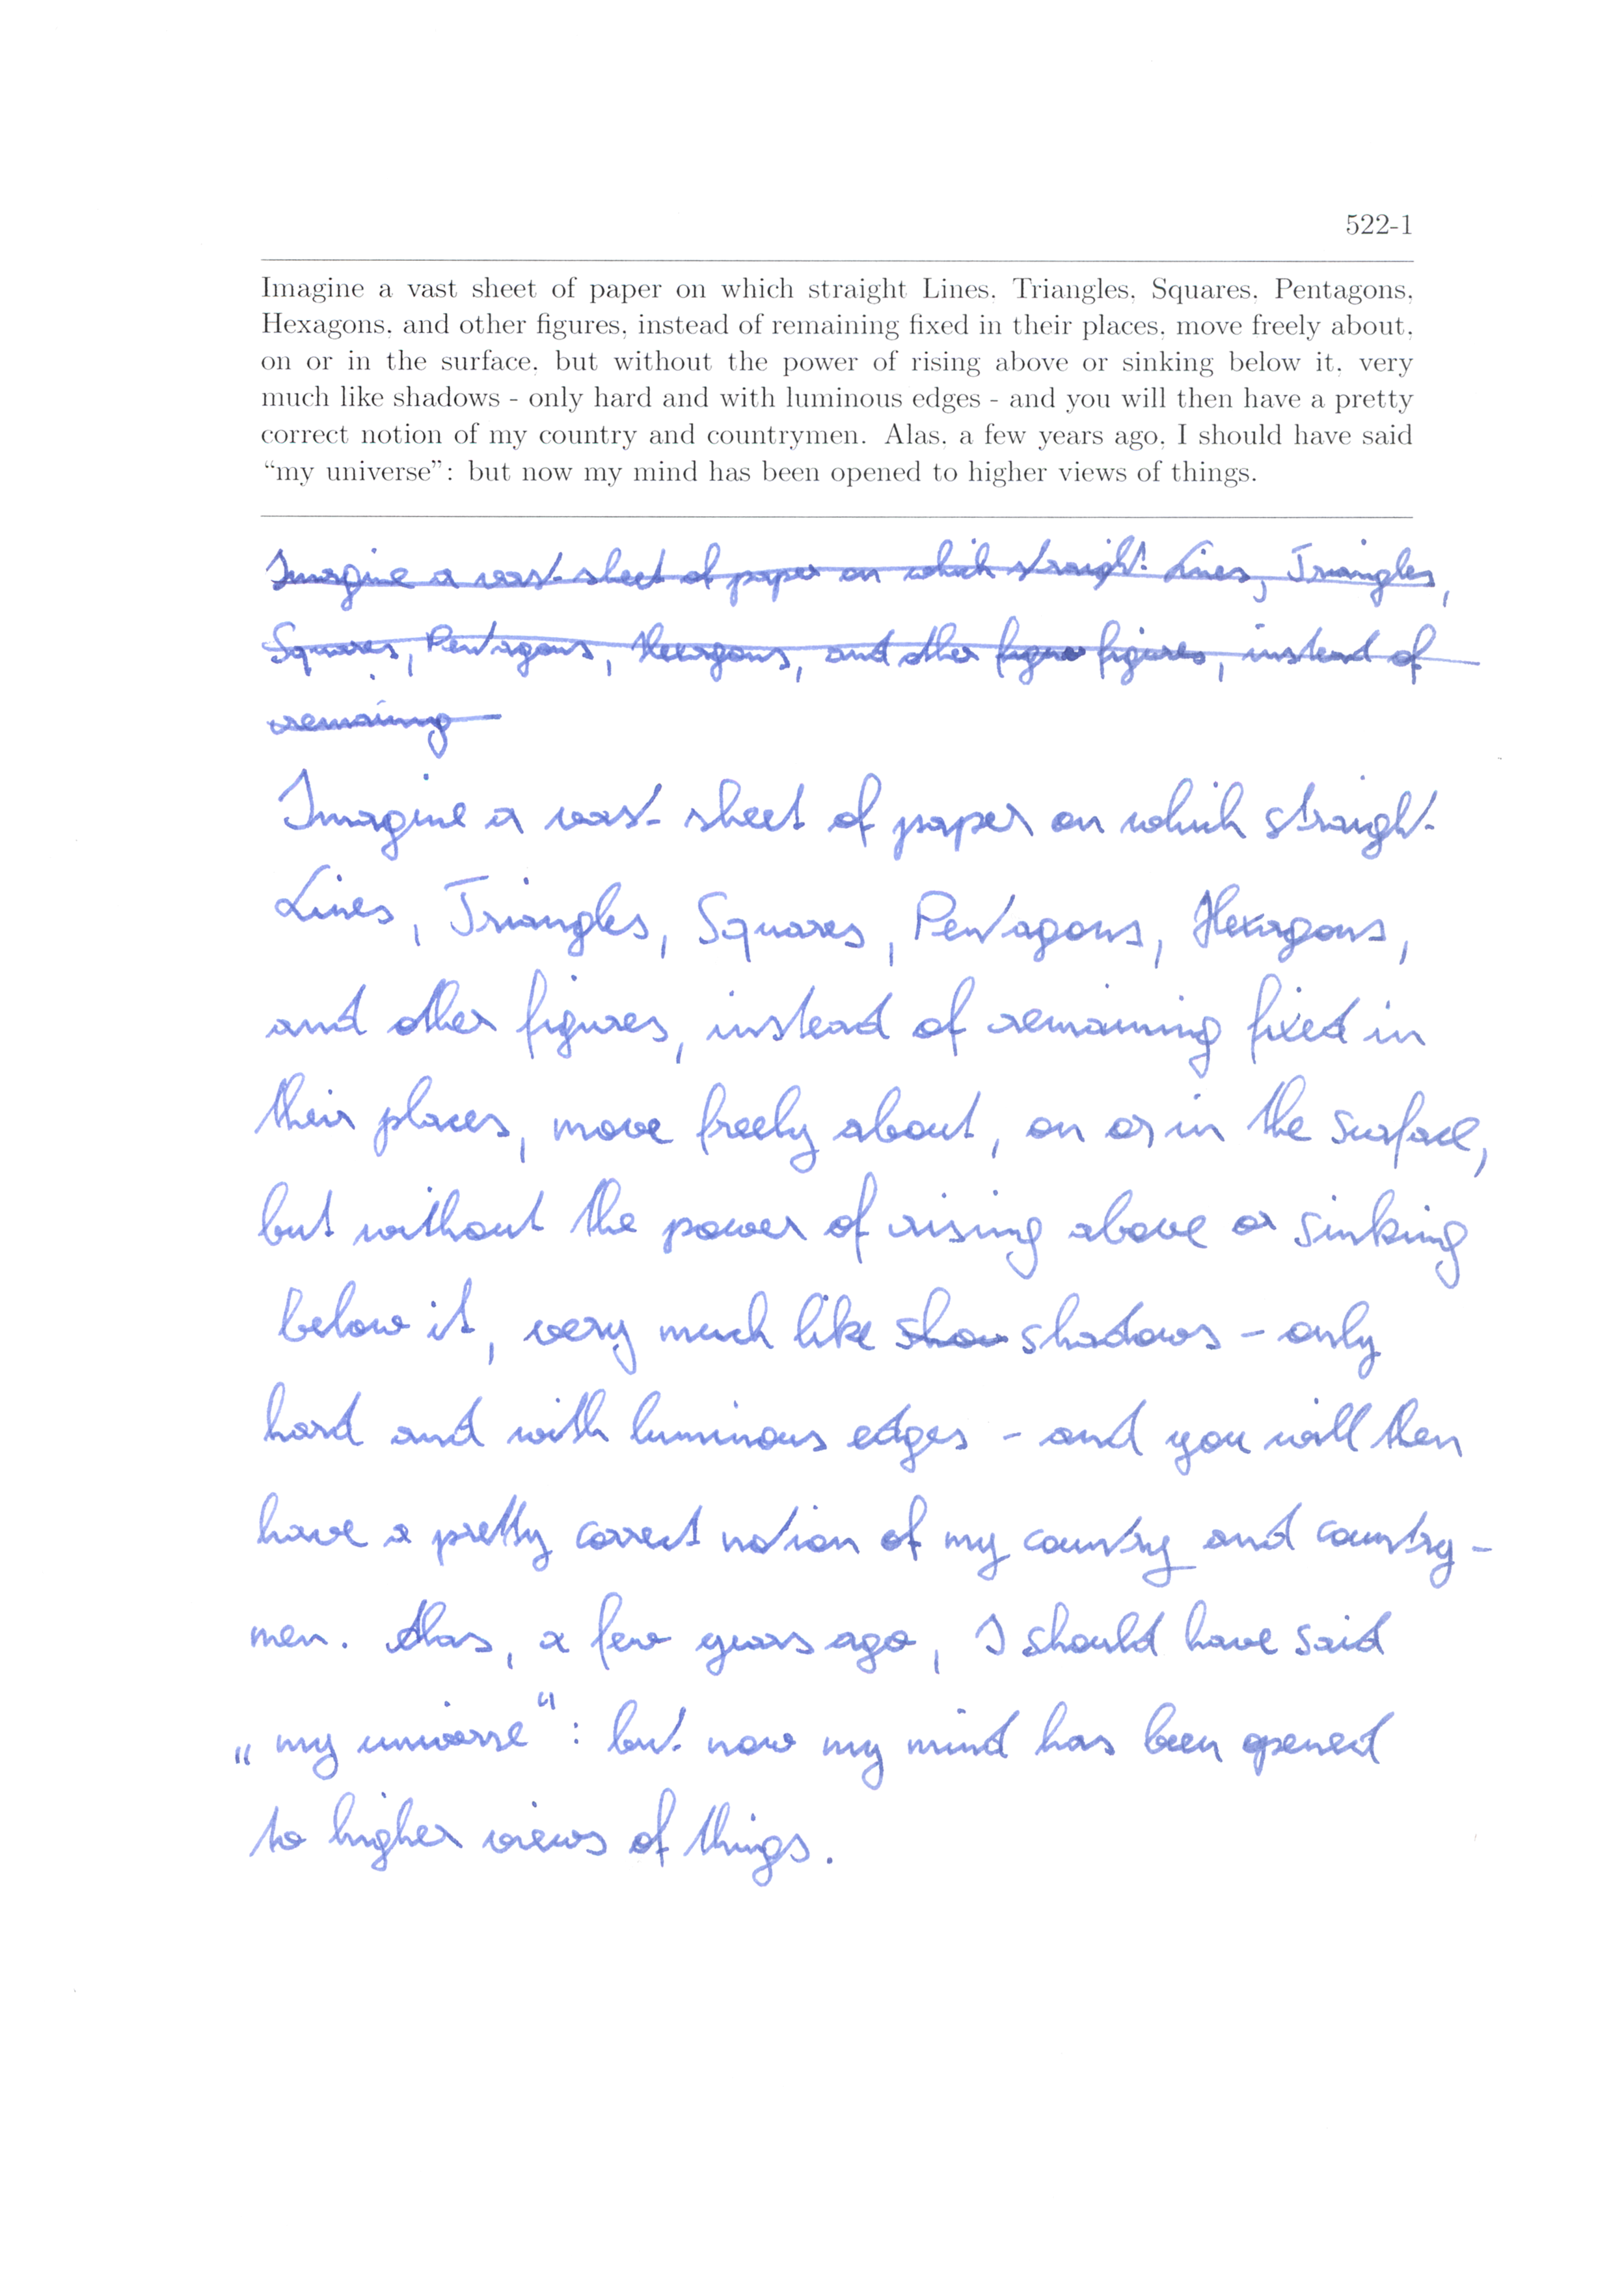 522-1
Imagine a vast sheet of paper on which straight Lines, Triangles, Squares, Pentagons,
Hexagons, and other figures, instead of remaining fixed in their places, move freely about,
on or in the surface, but without the power of rising above or sinking below it, very
much like shadows - only hard and with luminous edges - and you will then have a pretty
correct notion of my country and countrymen. Alas, a few years ago, I should have said
“my universe”: but now my mind has been opened to higher views of things.
Imagine a vast sheet of paper on which straight Lines, Triangles,
Squares, Pentagons, Hexagons, and other figure figures, instead of
remaining
Imagine a vast sheet of paper on which straight
Lines, Triangles, Squares, Pentagons, Hexagons,
and other figures, instead of remaining fixed in
their places, move freely about, on or in the surface,
but without the power of rising above or sinking
below it, very much like show shadows - only
hard and with luminous edges - and you will then
have a pretty correct notion of my country and country-
men. Alas, a few years ago, I should have said
„my universe“: but now my mind has been opened
to higher views of things.